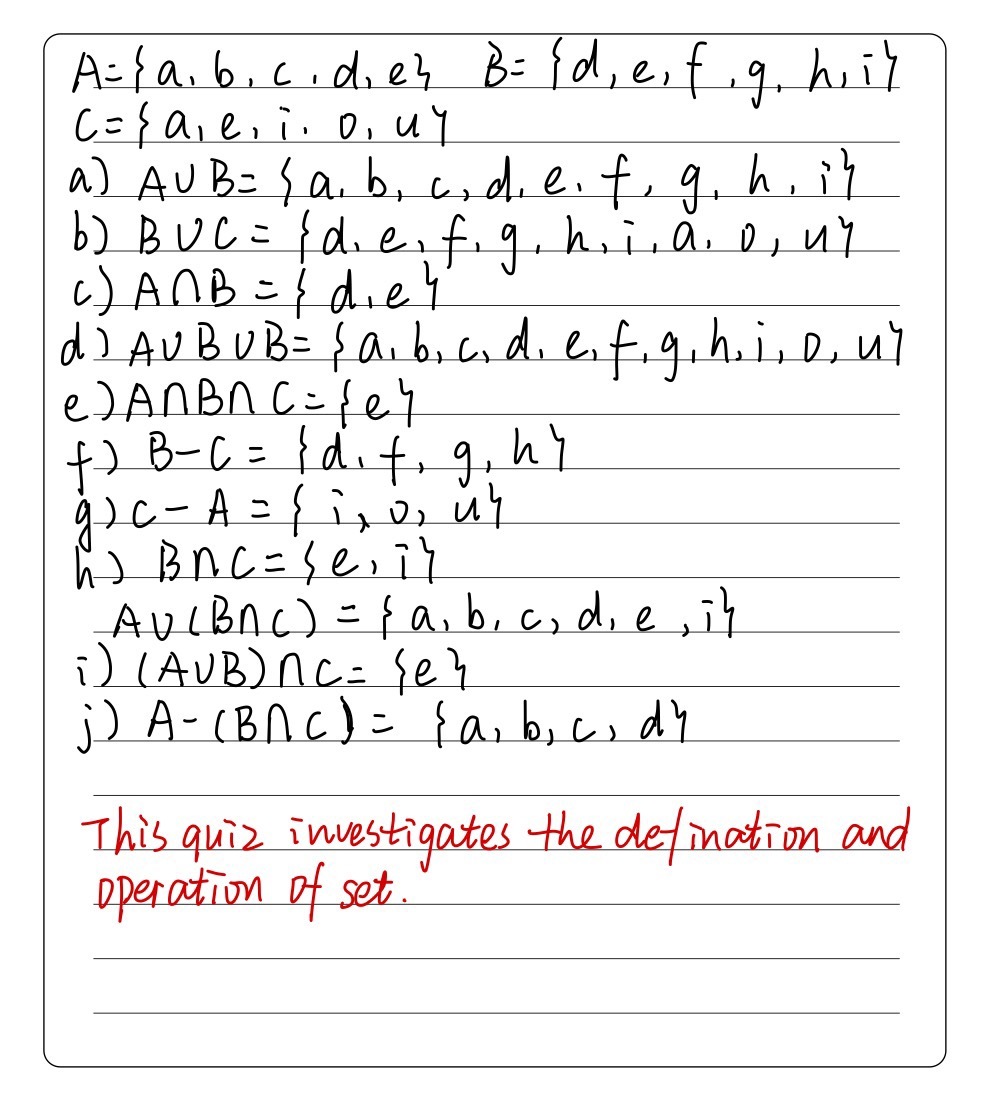 A={a, b, c, d, e} B={d, e, f, g, h, i}
C={a, e, i, o, u}
a) A∪B={a, b, c, d, e, f, g, h, i}
b) B∪C={d, e, f, g, h, i, a, o, u}
c) A∩B={d, e}
d) A∪B∪B={a, b, c, d, e, f, g, h, i, o, u}
e) A∩B∩C={e}
f) B-C={d, f, g, h}
g) C-A={i, o, u}
h) B∩C={e, i}
A∪(B∩C)={a, b, c, d, e, i}
i) (A∪B)∩C={e}
j) A-(B∩C)={a, b, c, d}
This quiz investigates the defination and
operation of set.